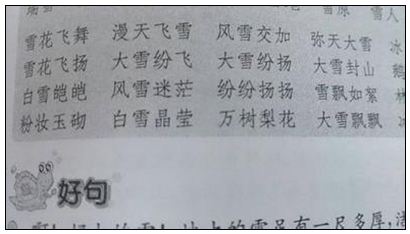 雪原 雪人
雪花飞舞 漫天飞雪 风雪交加 弥天大雪 冰
雪花飞扬 大雪纷飞 大雪纷扬 大雪封山 鹅
白雪皑皑 风雪迷茫 纷纷扬扬 雪飘如絮 林
粉妆玉砌 白雪晶莹 万树梨花 大雪飘飘 冰
好句
地上的雪足有一尺多厚,